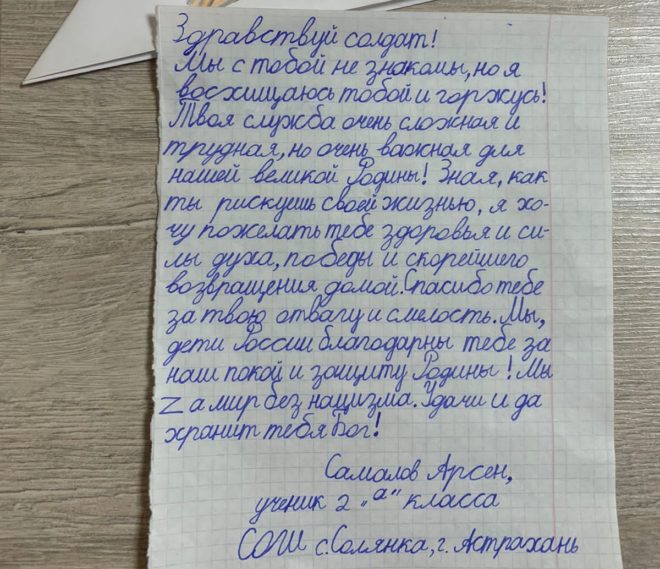 Здравствуй солдат!
Мы с тобой не знакомы, но я
восхищаюсь тобой и горжусь!
Твоя служба очень сложная и
трудная, но очень важная для
нашей великой Родины! Зная, как
ты рискуешь своей жизнью, я хо-
чу пожелать тебе здоровья и си-
лы духа, победы и скорейшего
возвращения домой. Спасибо тебе
за твою отвагу и смелость. Мы,
дети России благодарны тебе за
наш покой и защиту Родины! Мы
Zа мир без нацизма. Удачи и да
хранит тебя Бог!
Самалов Арсен,
ученик 2 "а" класса
СОШ с. Солянка, г. Астрахань